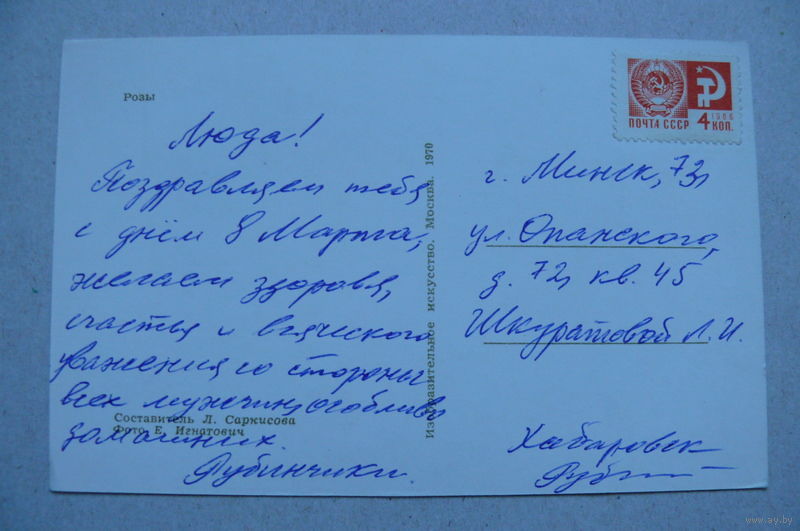 Розы
Люда!
Поздравляем тебя
с днём 8 Марта,
желаем здоровья,
счастья и всяческого
уважения со стороны
всех мужчин, особливо
домашних.
Рубинчики
Составитель Л. Саркисова
Фото Е. Игнатович
Изобразительное искусство. Москва. 1970
ПОЧТА СССР
1966
4 КОП.
г. Минск, 73,
ул. Опанского,
д. 72, кв. 45
Шкуратовой Л. И.
Хабаровск
www.ay.by